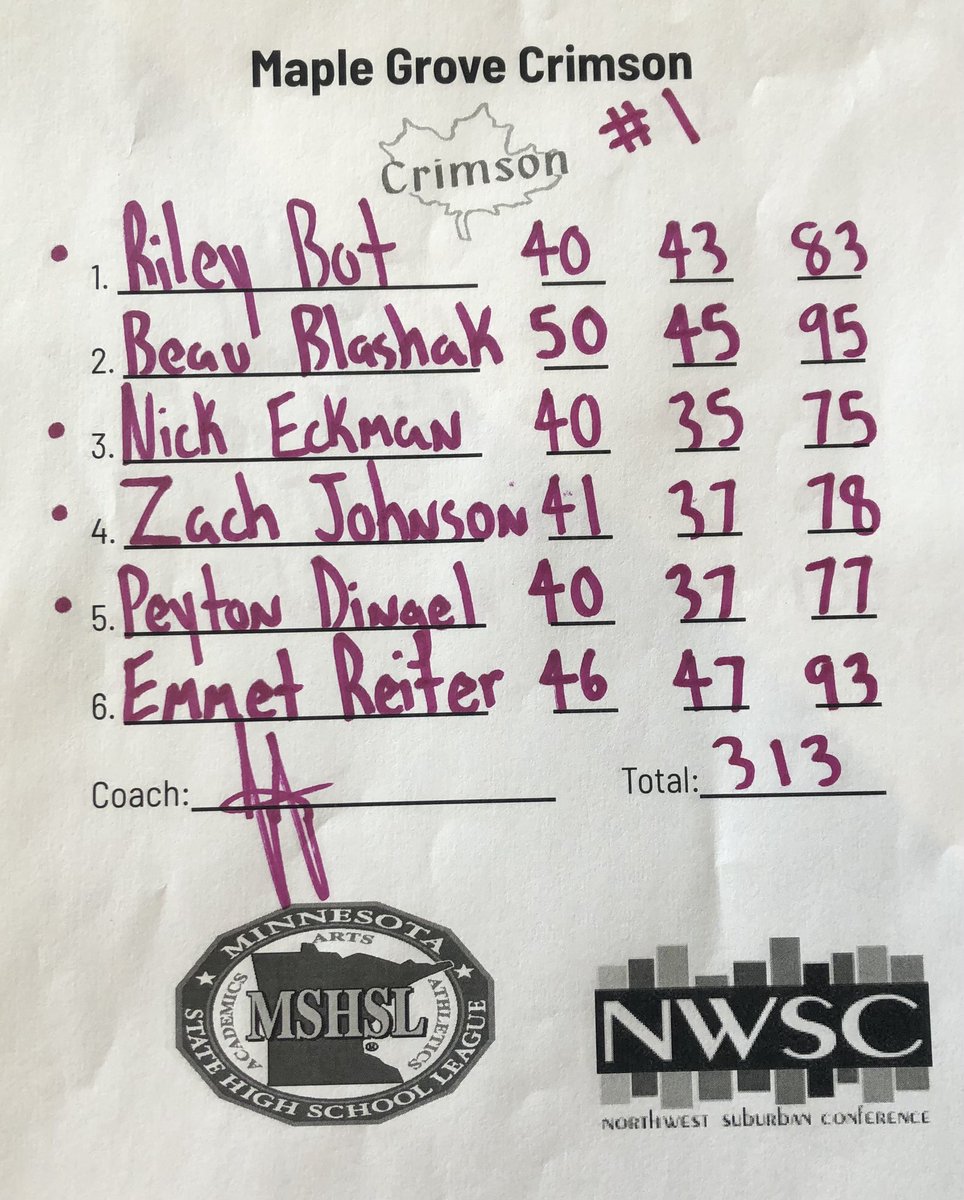 Maple Grove Crimson
Crimson #1
1. Riley Bot 40 43 83
2. Beau Blashak 50 45 95
3. Nick Eckman 40 35 75
4. Zach Johnson 41 37 78
5. Peyton Dingel 40 37 77
6. Emmet Reiter 46 47 93
Coach: Total: 313
MINNESOTA
STATE HIGH SCHOOL LEAGUE
ACADEMICS ARTS ATHLETICS
MSHSL®
NWSC
NORTHWEST SUBURBAN CONFERENCE